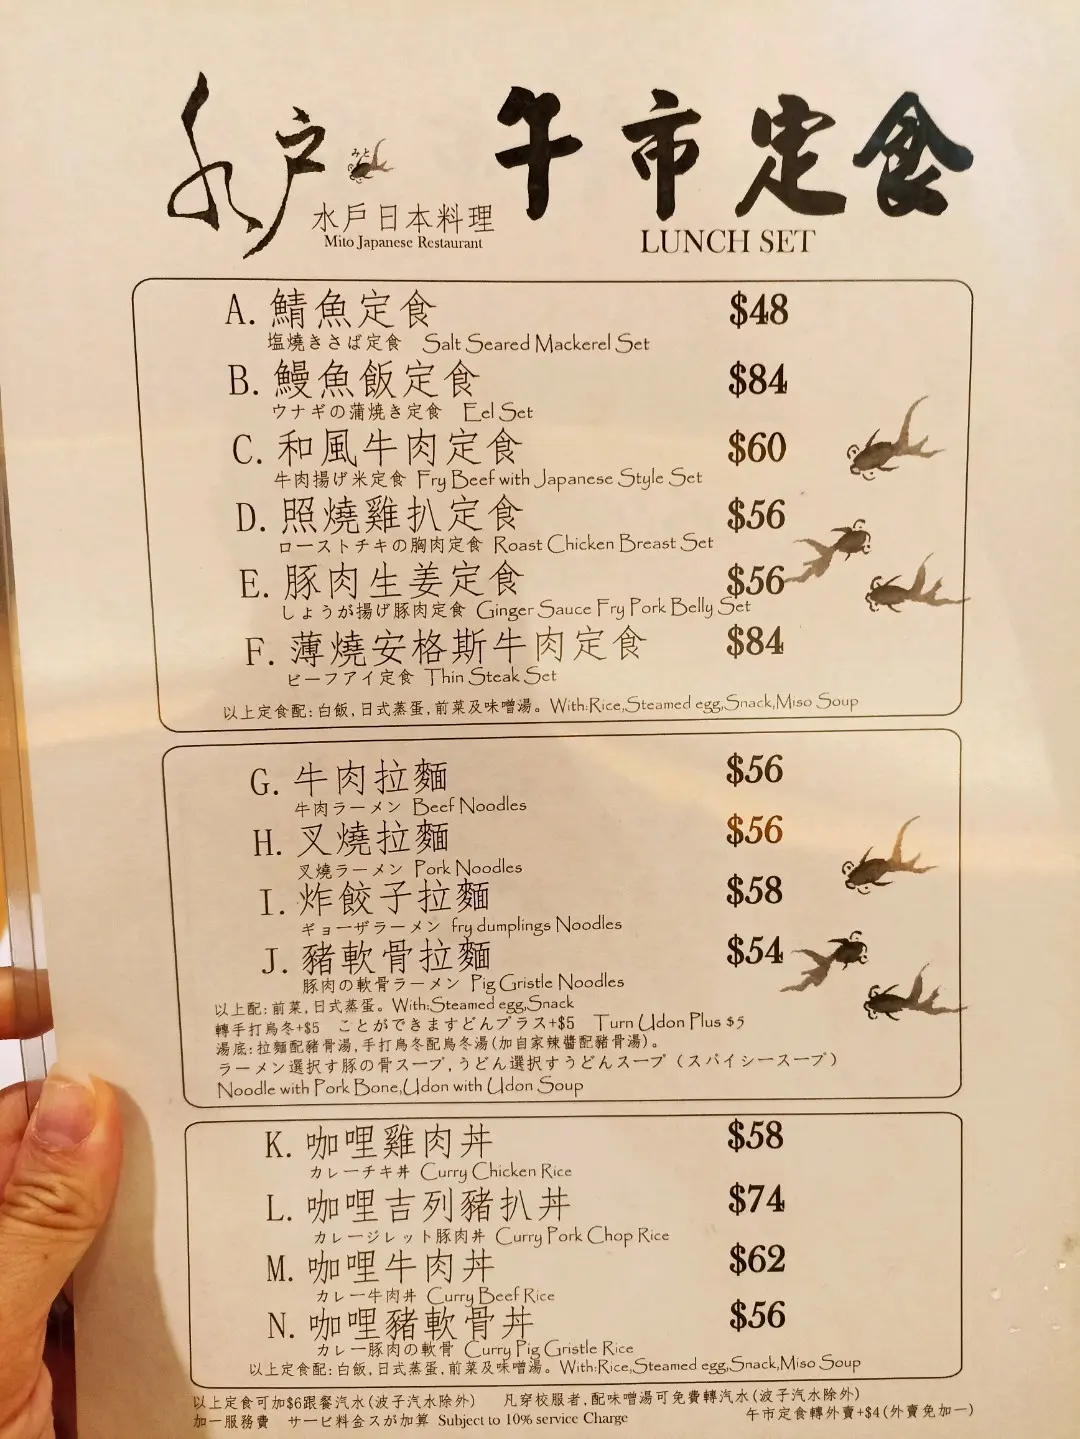 水戸 みと 午市定食
水戶日本料理
Mito Japanese Restaurant
LUNCH SET
A. 鯖魚定食 $48
塩焼きさば定食 Salt Seared Mackerel Set
B. 鰻魚飯定食 $84
ウナギの蒲焼き定食 Eel Set
C. 和風牛肉定食 $60
牛肉揚げ米定食 Fry Beef with Japanese Style Set
D. 照燒雞扒定食 $56
ローストチキの胸肉定食 Roast Chicken Breast Set
E. 豚肉生姜定食 $56
しょうが揚げ豚肉定食 Ginger Sauce Fry Pork Belly Set
F. 薄燒安格斯牛肉定食 $84
ビーフアイ定食 Thin Steak Set
以上定食配:白飯,日式蒸蛋,前菜及味噌湯。With:Rice,Steamed egg,Snack,Miso Soup
G. 牛肉拉麵 $56
牛肉ラーメン Beef Noodles
H. 叉燒拉麵 $56
叉燒ラーメン Pork Noodles
I. 炸餃子拉麵 $58
ギョーザラーメン fry dumplings Noodles
J. 豬軟骨拉麵 $54
豚肉の軟骨ラーメン Pig Gristle Noodles
以上配:前菜,日式蒸蛋。With:Steamed egg,Snack
轉手打烏冬+$5 ことができますどんプラス+$5 Turn Udon Plus $5
湯底:拉麵配豬骨湯,手打烏冬配烏冬湯(加自家辣醬配豬骨湯)。
ラーメン選択す豚の骨スープ,うどん選択すうどんスープ(スパイシースープ)
Noodle with Pork Bone,Udon with Udon Soup
K. 咖哩雞肉丼 $58
カレーチキ丼 Curry Chicken Rice
L. 咖哩吉列豬扒丼 $74
カレージレット豚肉丼 Curry Pork Chop Rice
M. 咖哩牛肉丼 $62
カレー牛肉丼 Curry Beef Rice
N. 咖哩豬軟骨丼 $56
カレー豚肉の軟骨 Curry Pig Gristle Rice
以上定食配:白飯,日式蒸蛋,前菜及味噌湯。With:Rice,Steamed egg,Snack,Miso Soup
以上定食可加$6跟餐汽水(波子汽水除外) 凡穿校服者,配味噌湯可免費轉汽水(波子汽水除外)
加一服務費 サービ料金スが加算 Subject to 10% service Charge 午市定食轉外賣+$4(外賣免加一)